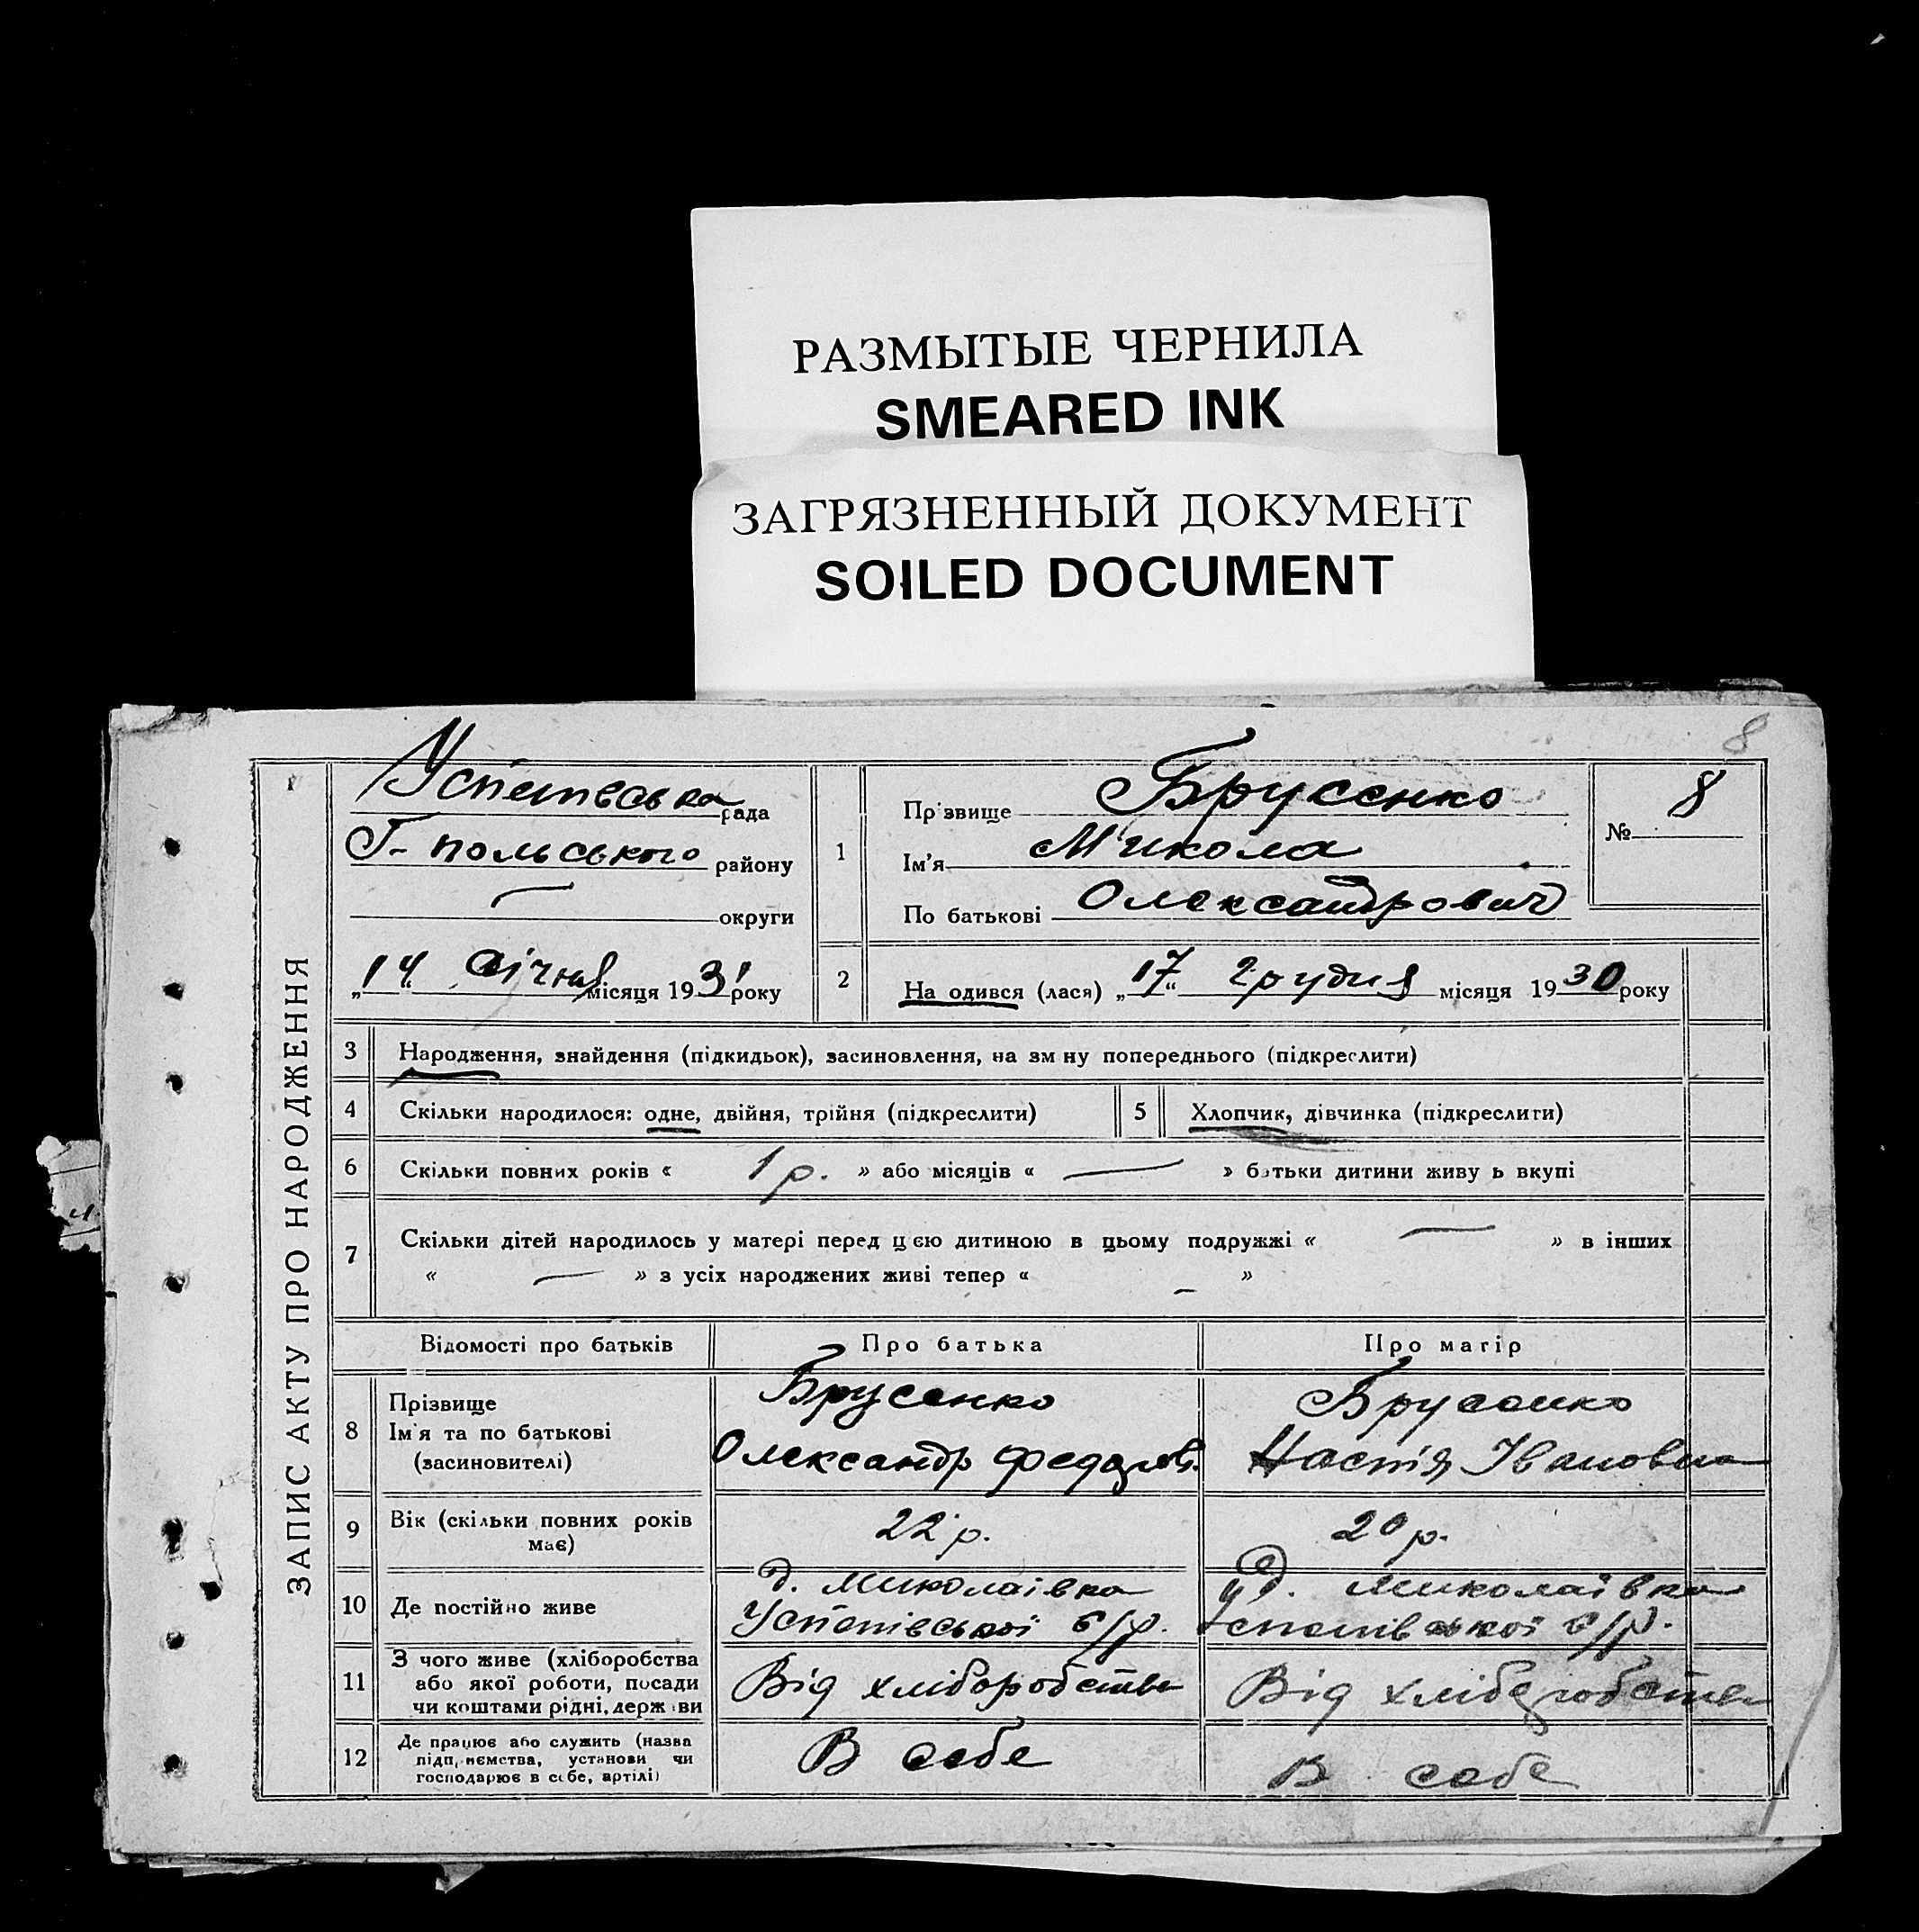 РАЗМЫТЫЕ ЧЕРНИЛА
SMEARED INK
ЗАГРЯЗНЕННЫЙ ДОКУМЕНТ
SOILED DOCUMENT
8
ЗАПИС АКТУ ПРО НАРОДЖЕННЯ
рада
Г-польського району
округи
„14“ Січня місяця 1931 року
1
Прізвище Брусенко
Ім'я Микола
По батькові Олександрович
№ 8
2 На одився (лася) „17“ грудня місяця 1930 року
3 Народження, знайдення (підкидьок), засиновлення, на зм ну попереднього (підкреслити)
4 Скільки народилося: одне, двійня, трійня (підкреслити)
5 Хлопчик, дівчинка (підкреслити)
6 Скільки повних років « 1 р. » або місяців « — » батьки дитини живу ь вкупі
7 Скільки дітей народилось у матері перед цією дитиною в цьому подружжі « — » в інших
« — » з усіх народжених живі тепер « — »
Відомості про батьків Про батька Про матір
8 Прізвище
Ім'я та по батькові
(засиновителі)
Брусенко
Олександр Федоров.
Брусенко
Настія Івановна
9 Вік (скільки повних років
має)
22 р.
20 р.
10 Де постійно живе
д. Миколаївка
Успенівської с/р.
д. Миколаївка
Успенівської с/р.
11 З чого живе (хліборобства
або якої роботи, посади
чи коштами рідні, держ ви
Від хліборобства
Від хліборобства
12 Де працює або служить (назва
підприємства, установи чи
господарює в себе, артілі)
В себе
В себе